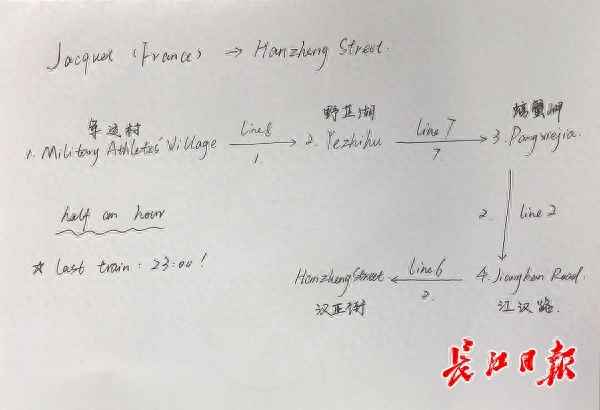 Jacques (France) → Hanzheng Street.
军运村
1. Military Athletes' Village
line 8
1
野芷湖
2. Yezhihu
line 7
7
螃蟹岬
3. Pangxiejia.
2.
line 2
half an hour
☆ last train: 23:00!
4. Jianghan Road.
江汉路.
line 6
2.
Hanzheng Street
汉正街
长江日报